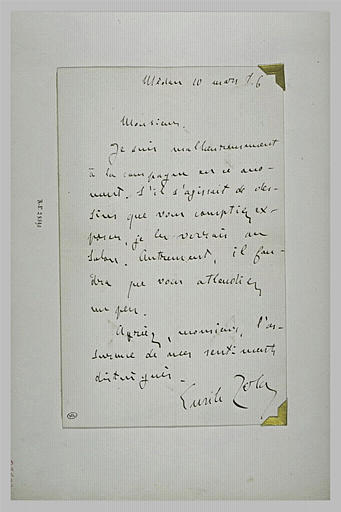 Médan 10 mars 86
Monsieur,
Je suis malheureusement
à la campagne en ce mo-
ment. S'il s'agissait de des-
sins que vous comptiez ex-
poser, je les verrais au
Salon. Autrement, il fau-
dra que vous attendiez
un peu.
Agréez, monsieur, l'as-
surance de mes sentiments
distingués.
Emile Zola